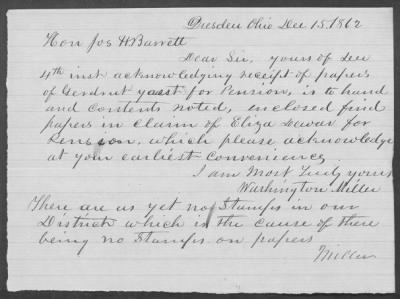 Dresden Ohio Dec 15. 1862
Hon Jos H Barrett
Dear Sir, yours of Dec
4th inst acknowledging receipt of papers
of Gerdrut yast for Pension, is to hand
and contents noted, enclosed find
papers in claim of Eliza Dewar for
Pension, which please acknowledge
at your earliest convenience
I am Most Truly yours
Washington Miller
There are as yet no Stamps in our
District which is the cause of there
being no Stamps on papers
Miller